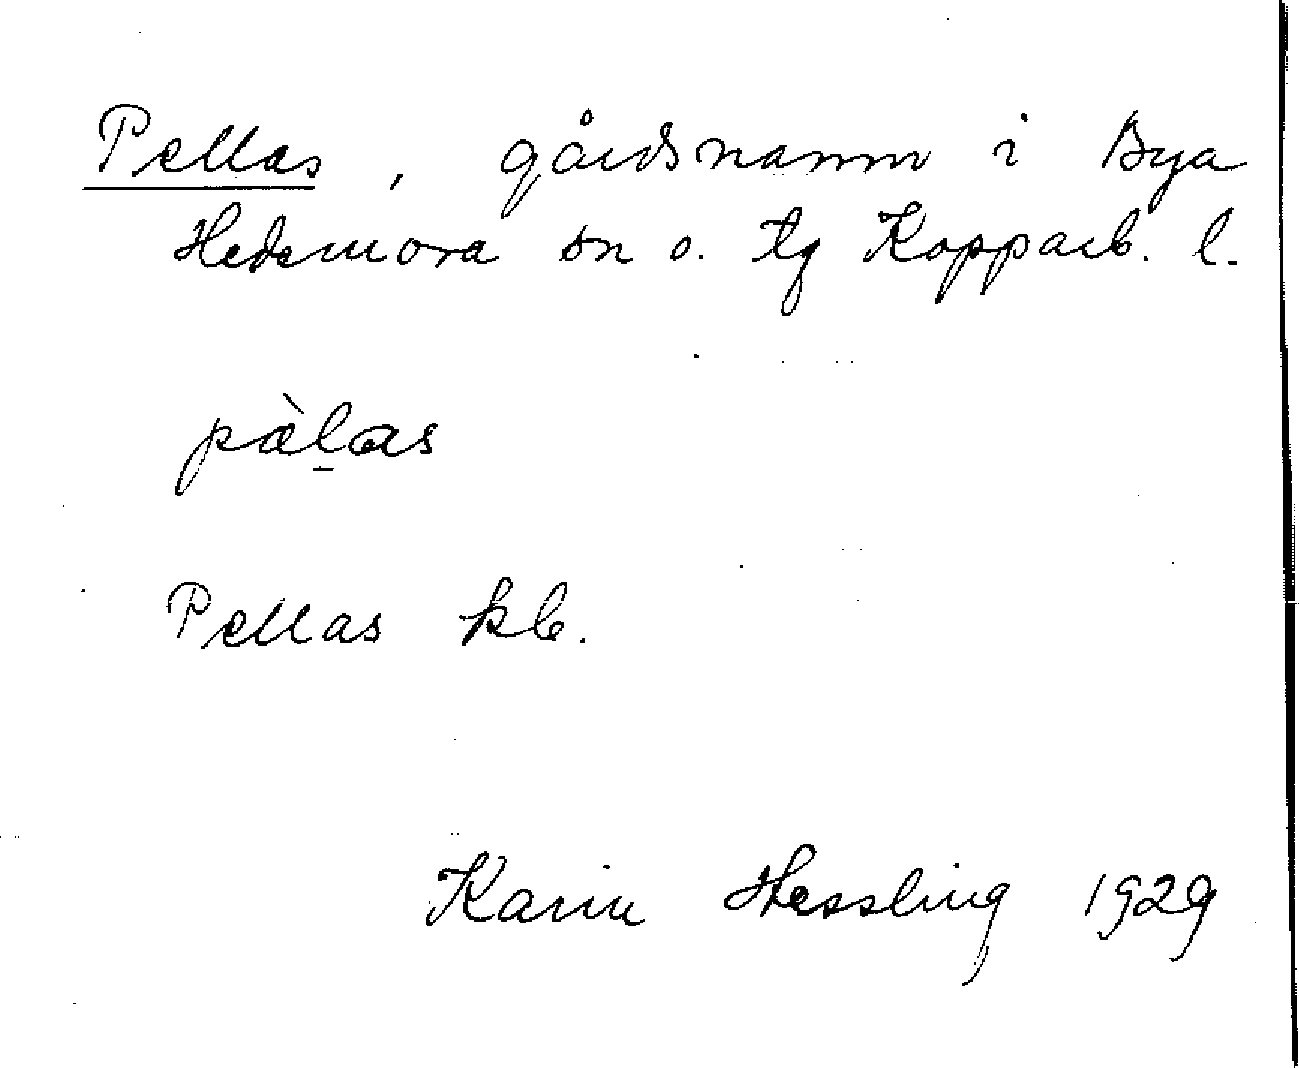 Pellas, gårdsnamn i Bya
Hedemora sn o. tg Kopparb. l.
pæ̀l̠as
Pellas kb.
Karin Hessling 1929